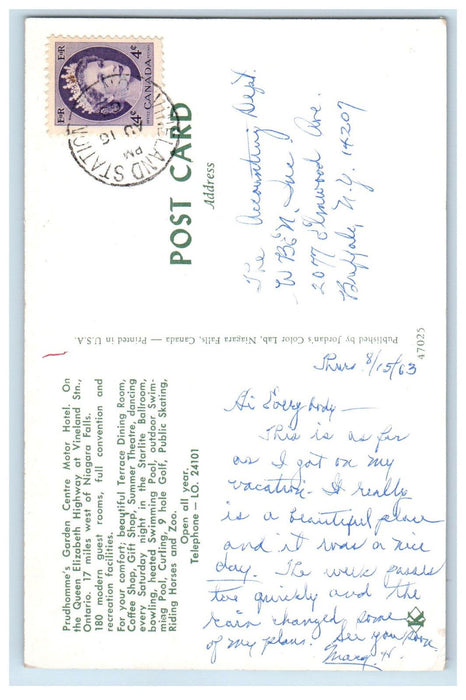 Prudhomme's Garden Centre Motor Hotel. On
the Queen Elizabeth Highway at Vineland Stn.,
Ontario. 17 miles west of Niagara Falls.
180 modern guest rooms, full convention and
recreation facilities.
For your comfort; beautiful Terrace Dining Room,
Coffee Shop, Gift Shop, Summer Theatre, dancing
every Saturday night in the Starlite Ballroom,
bowling, heated Swimming Pool, outdoor Swim-
ming Pool, Curling, 9 hole Golf, Public Skating,
Riding Horses and Zoo.
Open all year.
Telephone - LO. 24101
Published by Jordan's Color Lab, Niagara Falls, Canada — Printed in U.S.A.
47025
POST CARD
Address
E II R
E II R
4¢
4¢
CANADA
VINELAND STATION
PM
16
The Accounting Dept.
WBEN Inc
2077 Elmwood Ave.
Buffalo, N.Y. 14207
Thurs 8/15/63
Hi Everybody —
This is as far
as I got on my
vacation. It really
is a beautiful place
and it was a nice
day. The week passes
too quickly and the
rain changed some
of my plans. See you soon
Marg. H.
K